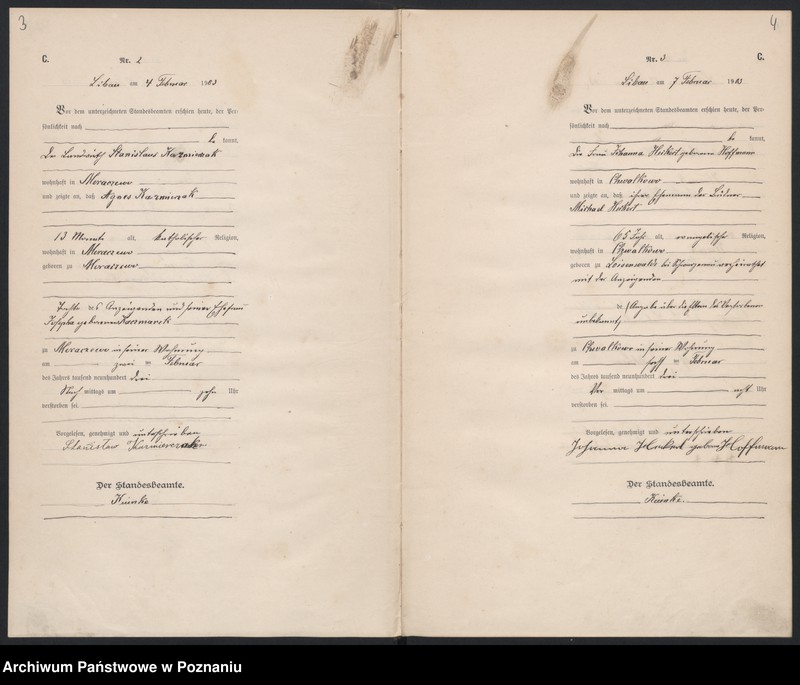 3
C.
Nr. 2
Libau am 4 Februar 1903
Vor dem unterzeichneten Standesbeamten erschien heute, der Per-
sönlichkeit nach
be kannt,
Der Landwirth Stanislaus Kazmierzak
wohnhaft in Moraczewo
und zeigte an, daß Agnes Kazmierzak
13 Monate alt, katholischer Religion,
wohnhaft in Moraczewo
geboren zu Moraczewo
Tochter des Anzeigenden und seiner Ehefrau
Josepha geborenen Kaczmarek
zu Moraczewo in seiner Wohnung
am zwei ten Februar
des Jahres tausend neunhundert drei
Nach mittags um zehn Uhr
verstorben sei.
Vorgelesen, genehmigt und unterschrieben
Stanisław Kazmierczak
Der Standesbeamte.
4
Nr. 3
C.
Libau am 7 Februar 1903
Vor dem unterzeichneten Standesbeamten erschien heute, der Per-
sönlichkeit nach
be kannt,
Die Frau Johanna Heckert geborene Hoffmann
wohnhaft in Chwalkowo
und zeigte an, daß ihr Ehemann der
Michael Heckert
65 Jahr alt, evangelischer Religion,
wohnhaft in Chwalkowo
geboren zu bei verheirathet
mit der Anzeigenden
de (Angabe über die Eltern des Verstorbenen
unbekannt)
zu Chwalkowo in seiner Wohnung
am ten Februar
des Jahres tausend neunhundert drei
Vor mittags um acht Uhr
verstorben sei.
Vorgelesen, genehmigt und unterschrieben
Johanna Heckert geborne Hoffmann
Der Standesbeamte.
Archiwum Państwowe w Poznaniu